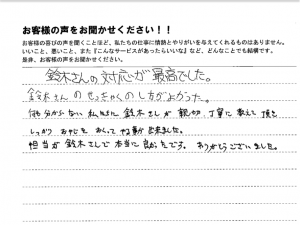 お客様の声をお聞かせください！！
お客様の喜びの声を聞くことほど、私たちの仕事に情熱とやりがいを与えてくれるものはありません。
いいこと、悪いこと、また『こんなサービスがあったらいいな』など、どんなことでも結構です。
是非、お客様の声をお聞かせください。
鈴木さんの対応が最高でした。
鈴木さんのせっきゃくのし方がよかった。
何も分からない私たちに鈴木さんが親切、丁寧に教えて頂き
しっかり
担当が鈴木さんで本当に良かったです。ありがとうございました。